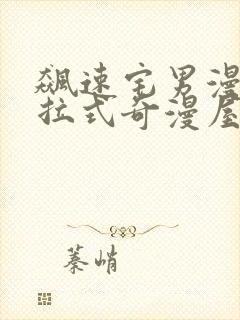 飙速宅男漫
拉式奇漫屋
蓁峭